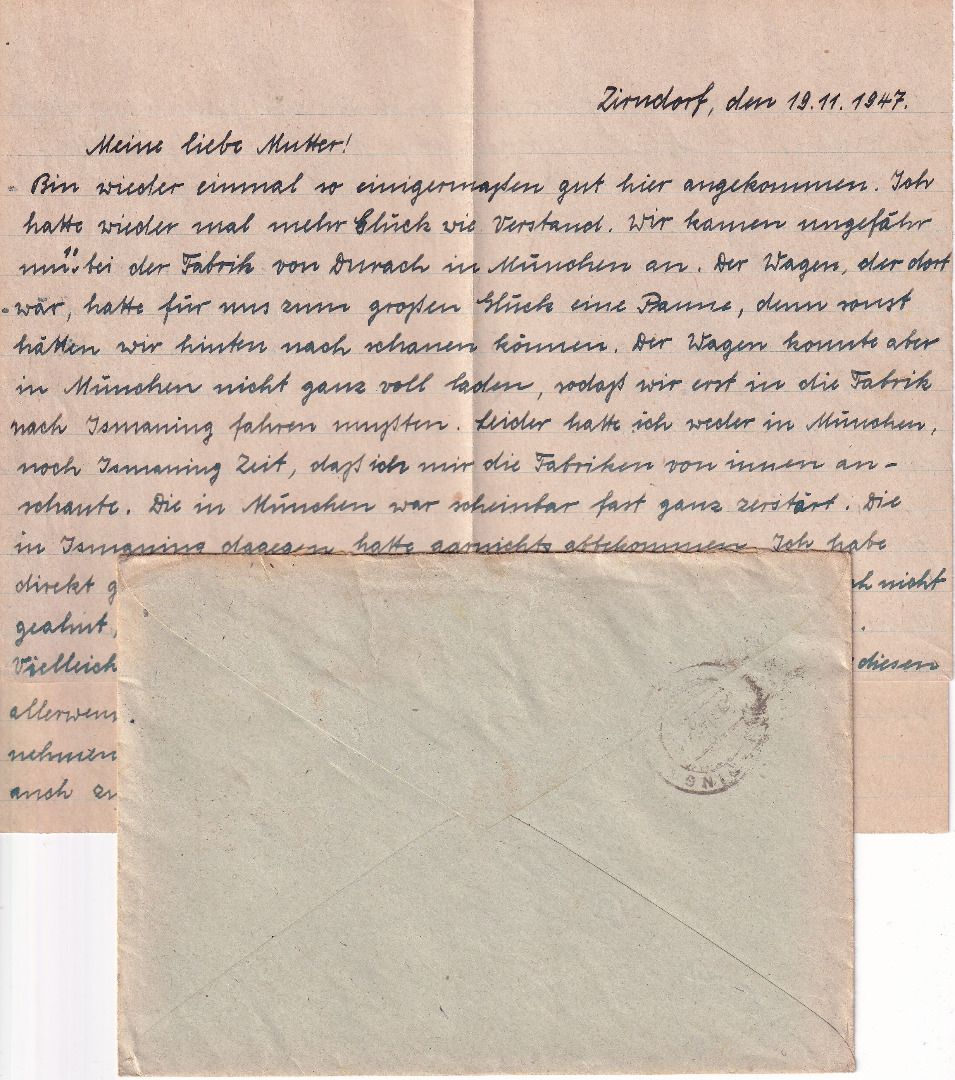 Zirndorf, den 19.11.1947.
Meine liebe Mutter!
Bin wieder einmal so einigermaßen gut hier angekommen. Ich
hatte wieder mal mehr Glück wie Verstand. Wir kamen ungefähr
um bei der Fabrik von Durach in München an. Der Wagen, der dort
wär, hatte für uns zum großen Glück eine Panne, denn sonst
hätten wir hinten nach schauen können. Der Wagen konnte aber
in München nicht ganz voll laden, sodaß wir erst in die Fabrik
nach Ismaning fahren mußten. Leider hatte ich weder in München,
noch Ismaning Zeit, daß ich mir die Fabriken von innen an-
schaute. Die in München war scheinbar fast ganz zerstört. Die
in Ismaning dagegen hatte garnichts abbekommen. Ich habe
direkt nicht
geahnt,
diesen
auch